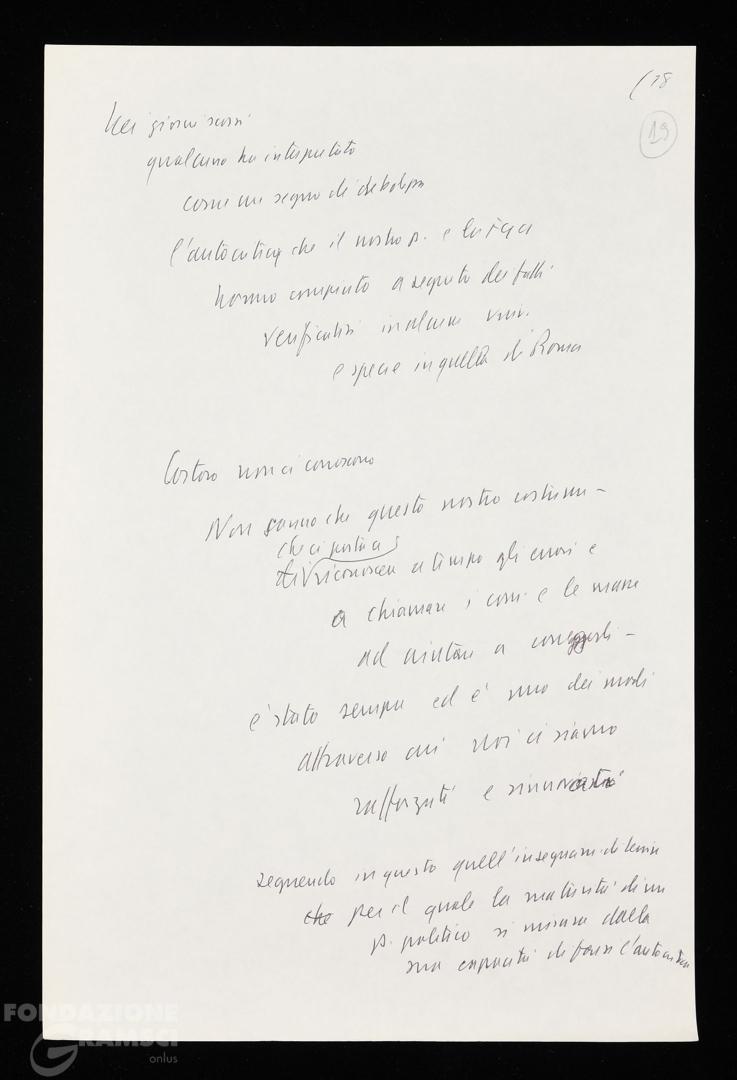 (18
19
Nei giorni scorsi
qualcuno ha interpretato
come un segno di debolezza
l'autocritica che il nostro p. e la FGCI
hanno compiuto a seguito dei fatti
verificatisi in alcune univ.
e specie in quella di Roma
Costoro non ci conoscono
Non sanno che questo nostro costume –
che ci porta a
di riconoscere a tempo gli errori e
a chiamare i comp. e le masse
ad aiutare a correggerli –
è stato sempre ed è uno dei modi
attraverso cui noi ci siamo
rafforzati e rinnovati
seguendo in questo quell'insegnam. di Lenin
che per il quale la maturità di un
p. politico si misura dalla
sua capacità di farsi l'autocritica
FONDAZIONE
GRAMSCI
onlus